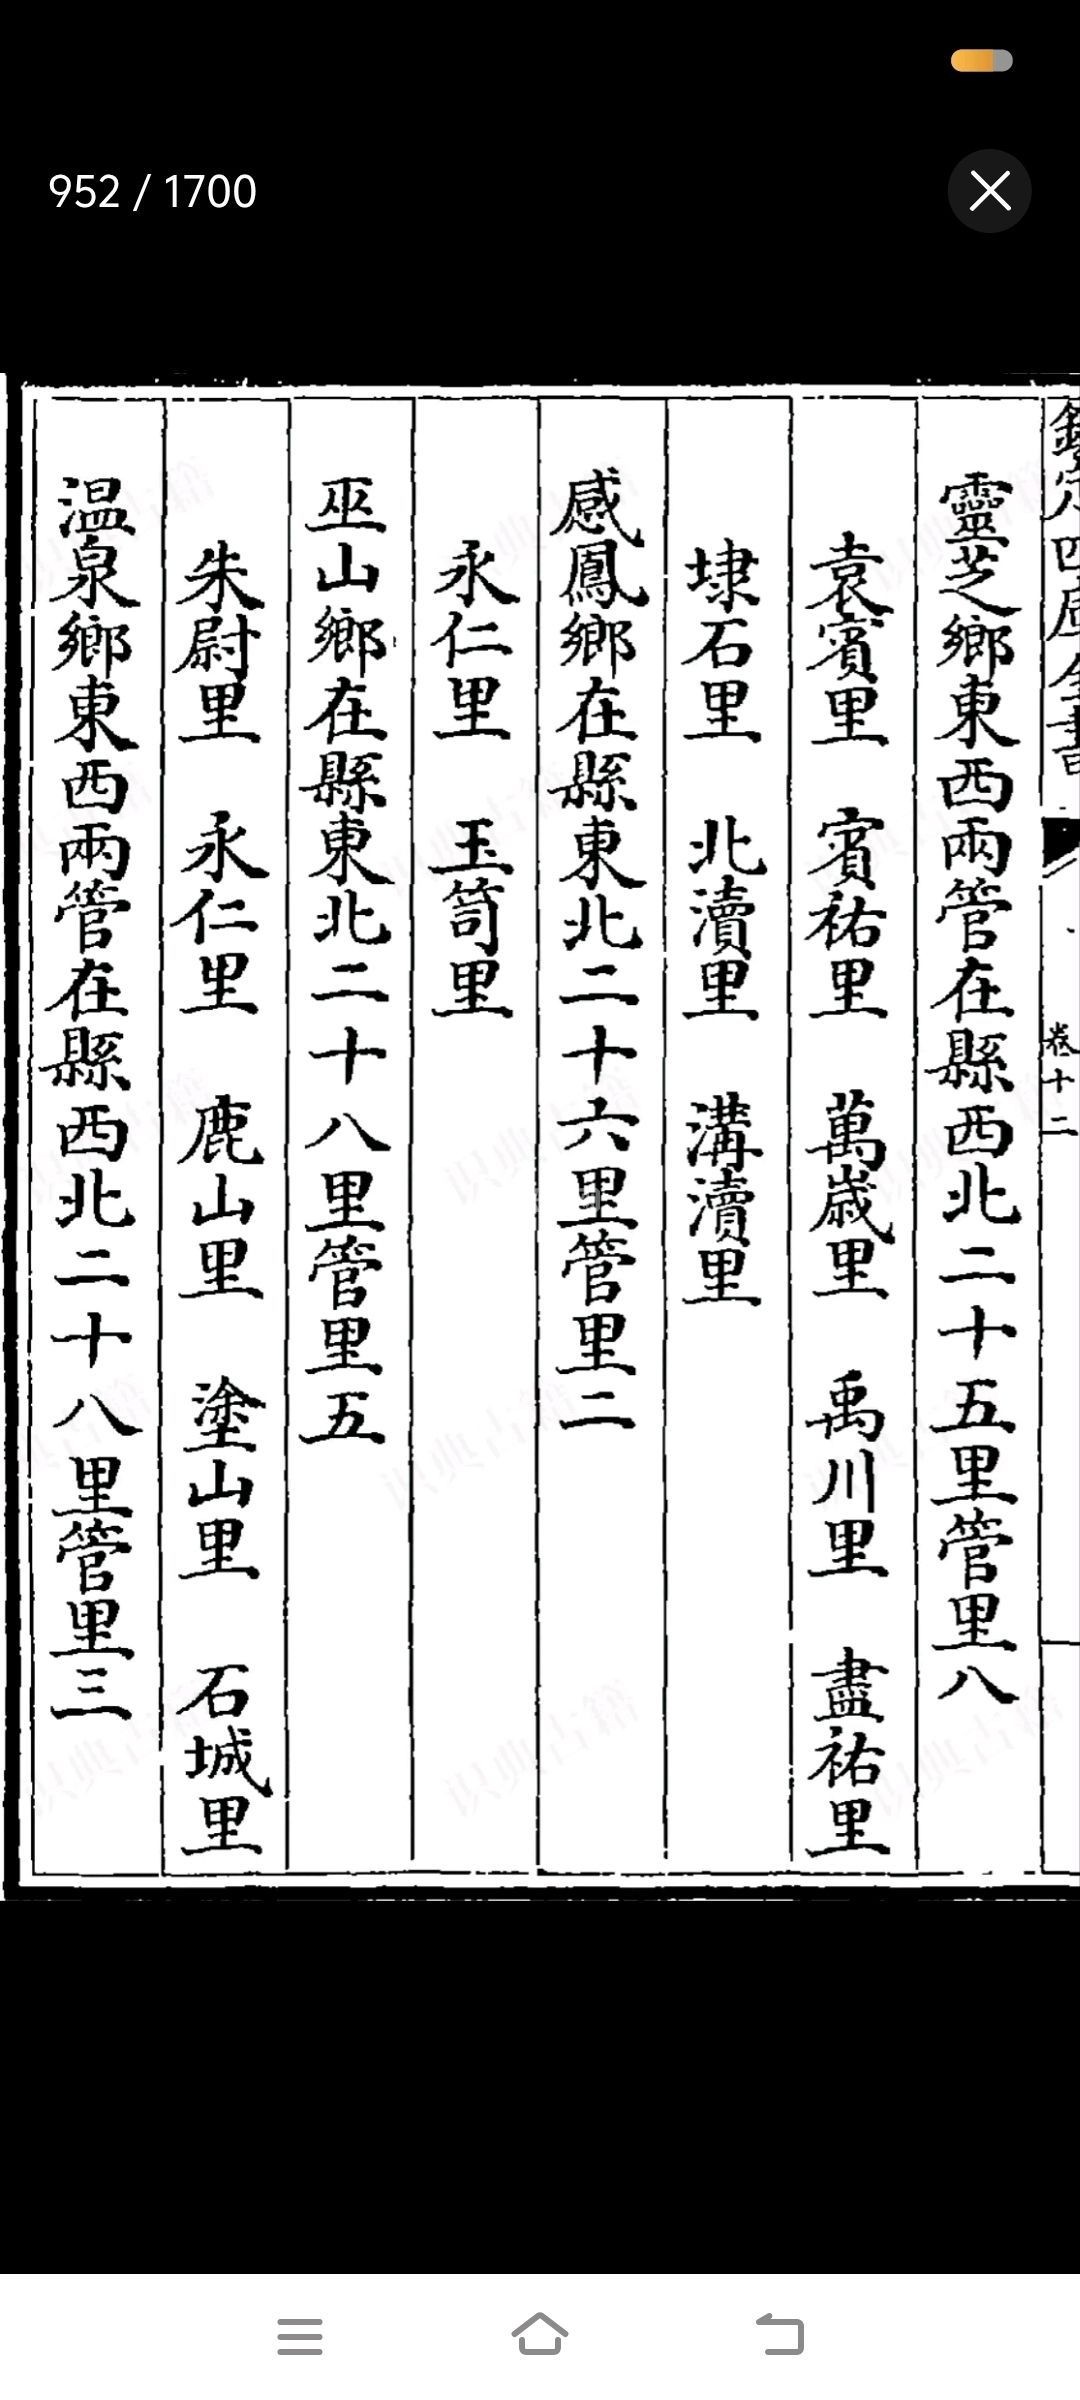 952 / 1700
欽定四庫全書
卷十二
靈芝鄉東西兩管在縣西北二十五里管里八
袁賓里 賓祐里 萬歲里 禹川里 盡祐里
埭石里 北瀆里 溝瀆里
感鳳鄉在縣東北二十六里管里二
永仁里 玉笥里
巫山鄉在縣東北二十八里管里五
朱尉里 永仁里 鹿山里 塗山里 石城里
温泉鄉東西兩管在縣西北二十八里管里三
识典古籍